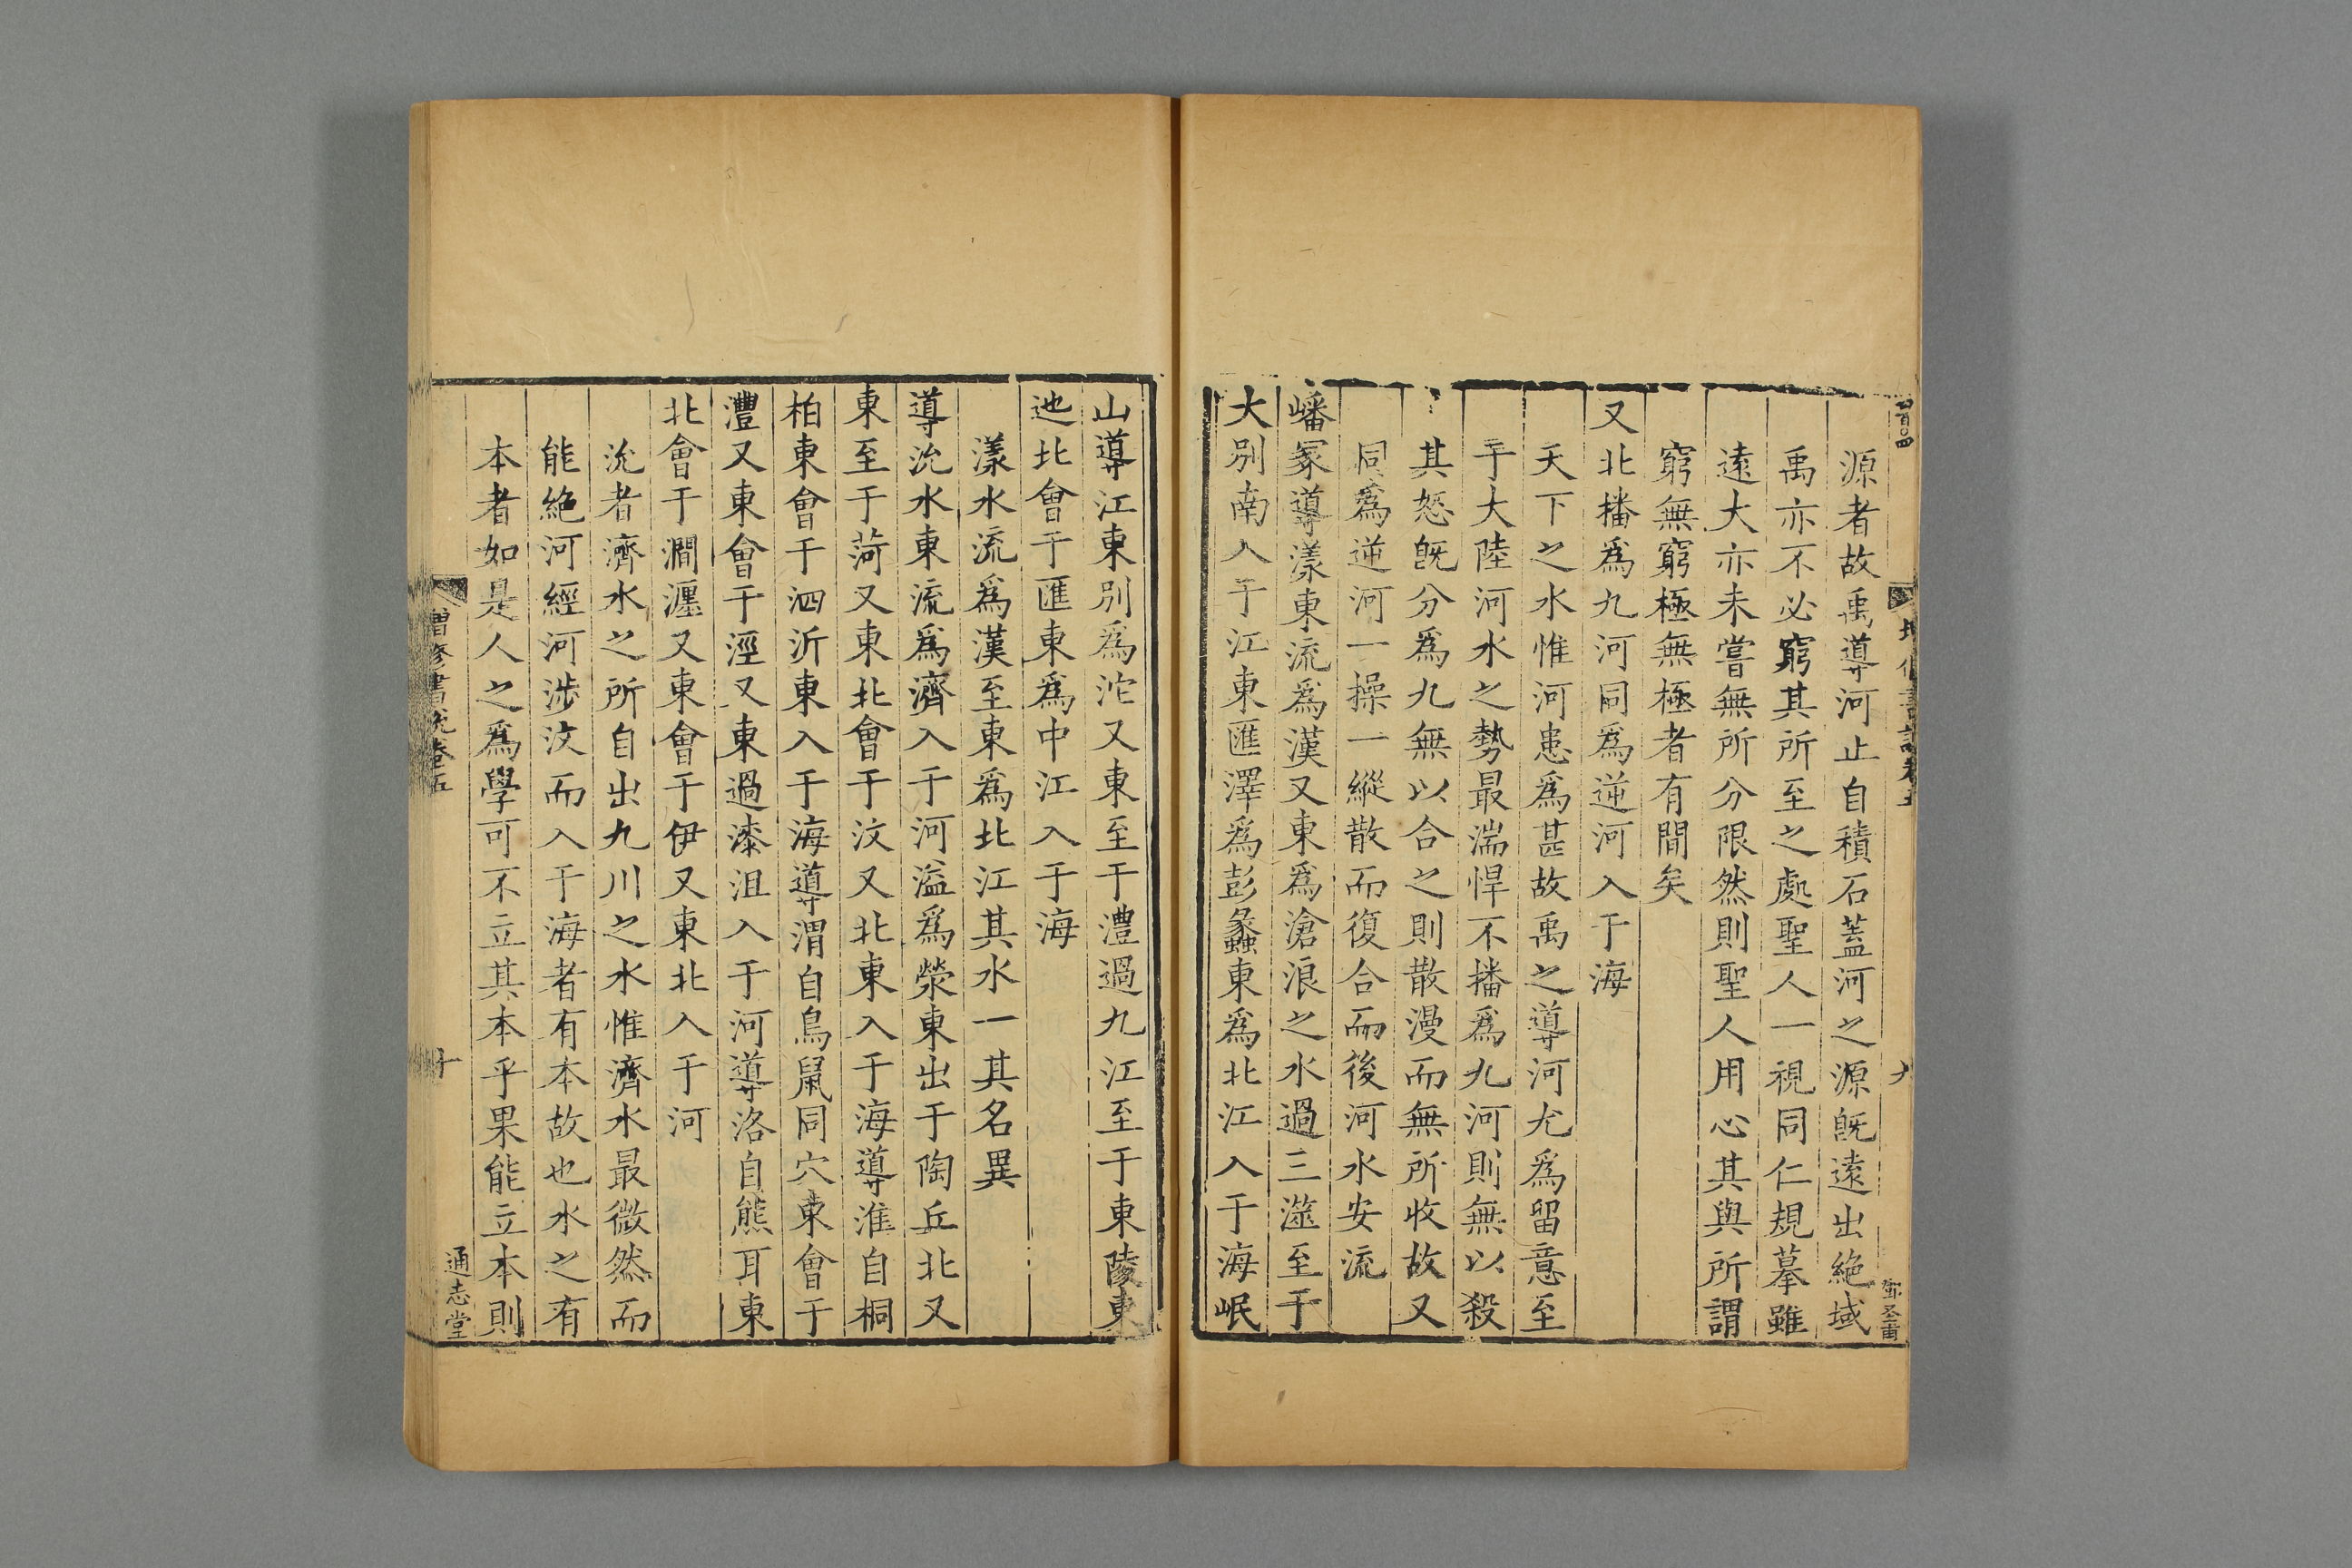 源者故禹導河止自積石蓋河之源旣遠出絶域
禹亦不必窮其所至之處聖人一視同仁規摹雖
遠大亦未嘗無所分限然則聖人用心其與所謂
窮無窮極無極者有間矣
又北播爲九河同爲逆河入于海
天下之水惟河患爲甚故禹之導河尤爲留意至
于大陸河水之勢最湍悍不播爲九河則無以殺
其怒旣分爲九無以合之則散漫而無所收故又
同爲逆河一操一縱散而復合而後河水安流
嶓冢導漾東流爲漢又東爲滄浪之水過三澨至于
大別南入于江東匯澤爲彭蠡東爲北江入于海岷
山導江東別爲沱又東至于澧過九江至于東陵東
迆北會于匯東爲中江入于海
漾水流爲漢至東爲北江其水一其名異
導沇水東流爲濟入于河溢爲滎東出于陶丘北又
東至于菏又東北會于汶又北東入于海導淮自桐
柏東會于泗沂東入于海導渭自鳥鼠同穴東會于
灃又東會于涇又東過漆沮入于河導洛自熊耳東
北會于澗瀍又東會于伊又東北入于河
沇者濟水之所自出九川之水惟濟水最微然而
能絶河經河涉汶而入于海者有本故也水之有
本者如是人之爲學可不立其本乎果能立本則
增修書說卷五
十
通志堂